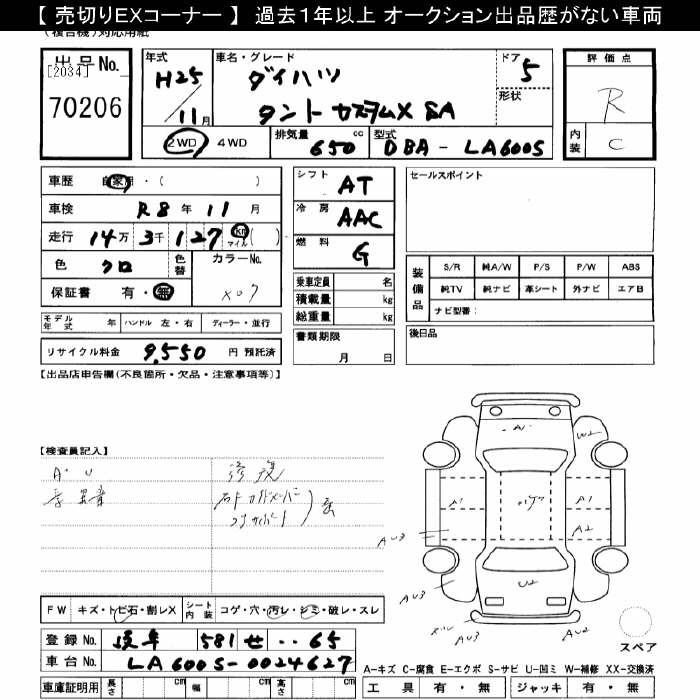 【 売切りEXコーナー 】 過去1年以上 オークション出品歴がない車両
(複合機)対応用紙
出品No.
[2034]
70206
年式
H25
11月
車名・グレード
ダイハツ
タント カスタムX SA
ドア
5
形状
評価点
R
内装
C
2WD 4WD
排気量 650 cc
型式 DBA - LA600S
車歴 自家用・( )
車検 R8年 11月
走行 14万 3千 127 km マイル ( )
色 クロ
色替
カラーNo.
X07
保証書 有・無
シフト AT
冷房 AAC
燃料 G
乗車定員 名
積載量 kg
総重量 kg
書類期限
月 日
セールスポイント
装備品
S/R 純A/W P/S P/W ABS
純TV 純ナビ 革シート 外ナビ エアB
ナビ型番:
後日品
モデル年式 年 ハンドル 左・右 ディーラー・並行
リサイクル料金 9,550 円 預託済
【出品店申告欄(不良箇所・欠品・注意事項等)】
【検査員記入】
A・U
修復
A1
U2
W2
A1
A1
A2
AU3
AU3
U2
AU3
AU2
FW キズ・トビ石・割レX
シート内装 コゲ・穴・汚レ・シミ・破レ・スレ
登録No. 岐阜 581 せ ・・65
車台No. LA600S-0024627
車庫証明用 長さ cm 幅 cm 高さ cm
スペア
A-キズ C-腐食 E-エクボ S-サビ U-凹ミ W-補修 XX-交換済
工具 有・無 ジャッキ 有・無